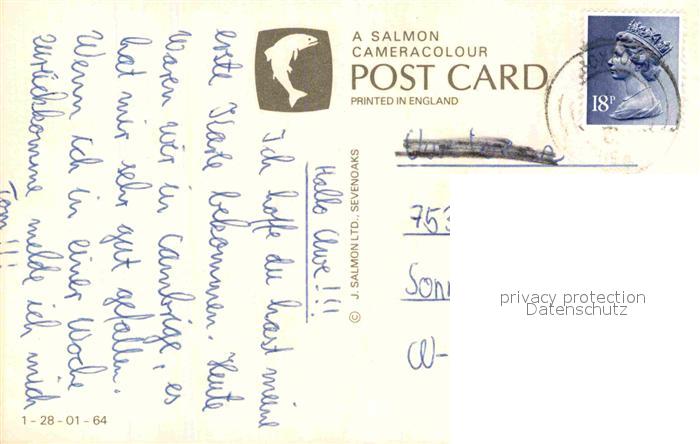 A SALMON
CAMERACOLOUR
POST CARD
PRINTED IN ENGLAND
18P
© J. SALMON LTD., SEVENOAKS
Hallo Uwe!!!
Ich hoffe du hast meine
erste Karte bekommen. Heute
waren wir in Cambrige, es
hat mir sehr gut gefallen.
Wenn ich in einer Woche
zurückkomme melde ich mich
Tom!!!
753
Sonn
W-
privacy protection
Datenschutz
1-28-01-64